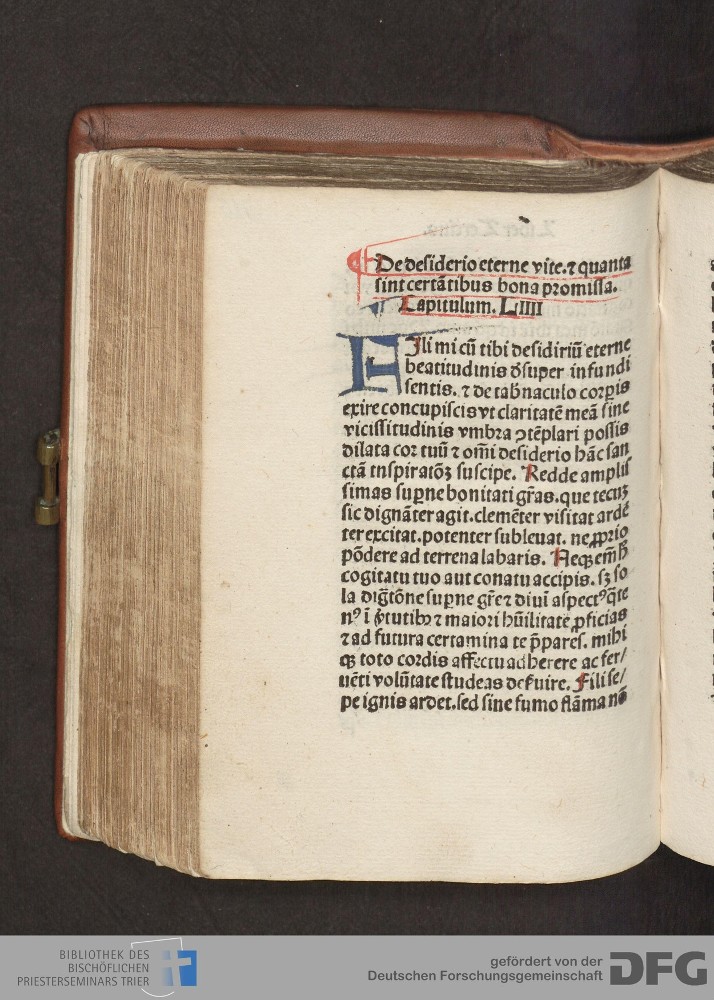 De desiderio eterne vite. ⁊ quanta
sint certãtibus bona promissa.
Capitulum. LIIII
FIli mi cũ tibi desidiriũ eterne
beatitudinis ðsuper infundi
sentis. ⁊ de tab̃naculo corꝑis
exire concupiscis vt claritatẽ meã sine
vicissitudinis vmbra ↄtẽplari possis
dilata cor tuũ ⁊ om̃i desiderio hãc san
ctã inspiratõꝫ suscipe. Redde amplis
simas suꝑne bonitati gr̃as. que tecuꝫ
sic dignãter agit. clemẽter visitat ardẽ
ter excitat. potenter subleuat. ne ꝓprio
põdere ad terrena labaris. Neqꝫ em̃ ħ
cogitatu tuo aut conatu accipis. sꝫ so
la dig̃tõne suꝑne gr̃e ⁊ diui aspectꝰ q̃te
nꝰ ĩ v̓tutibꝰ ⁊ maiori hũilitate ꝓficias
⁊ ad futura certamina te p̃pares. mihi
qꝫ toto cordis affectu adherere ac fer/
uẽti volũtate studeas deẜuire. Fili se/
pe ignis ardet. sed sine fumo flãma nõ
BIBLIOTHEK DES
BISCHÖFLICHEN
PRIESTERSEMINARS TRIER
gefördert von der
Deutschen Forschungsgemeinschaft DFG